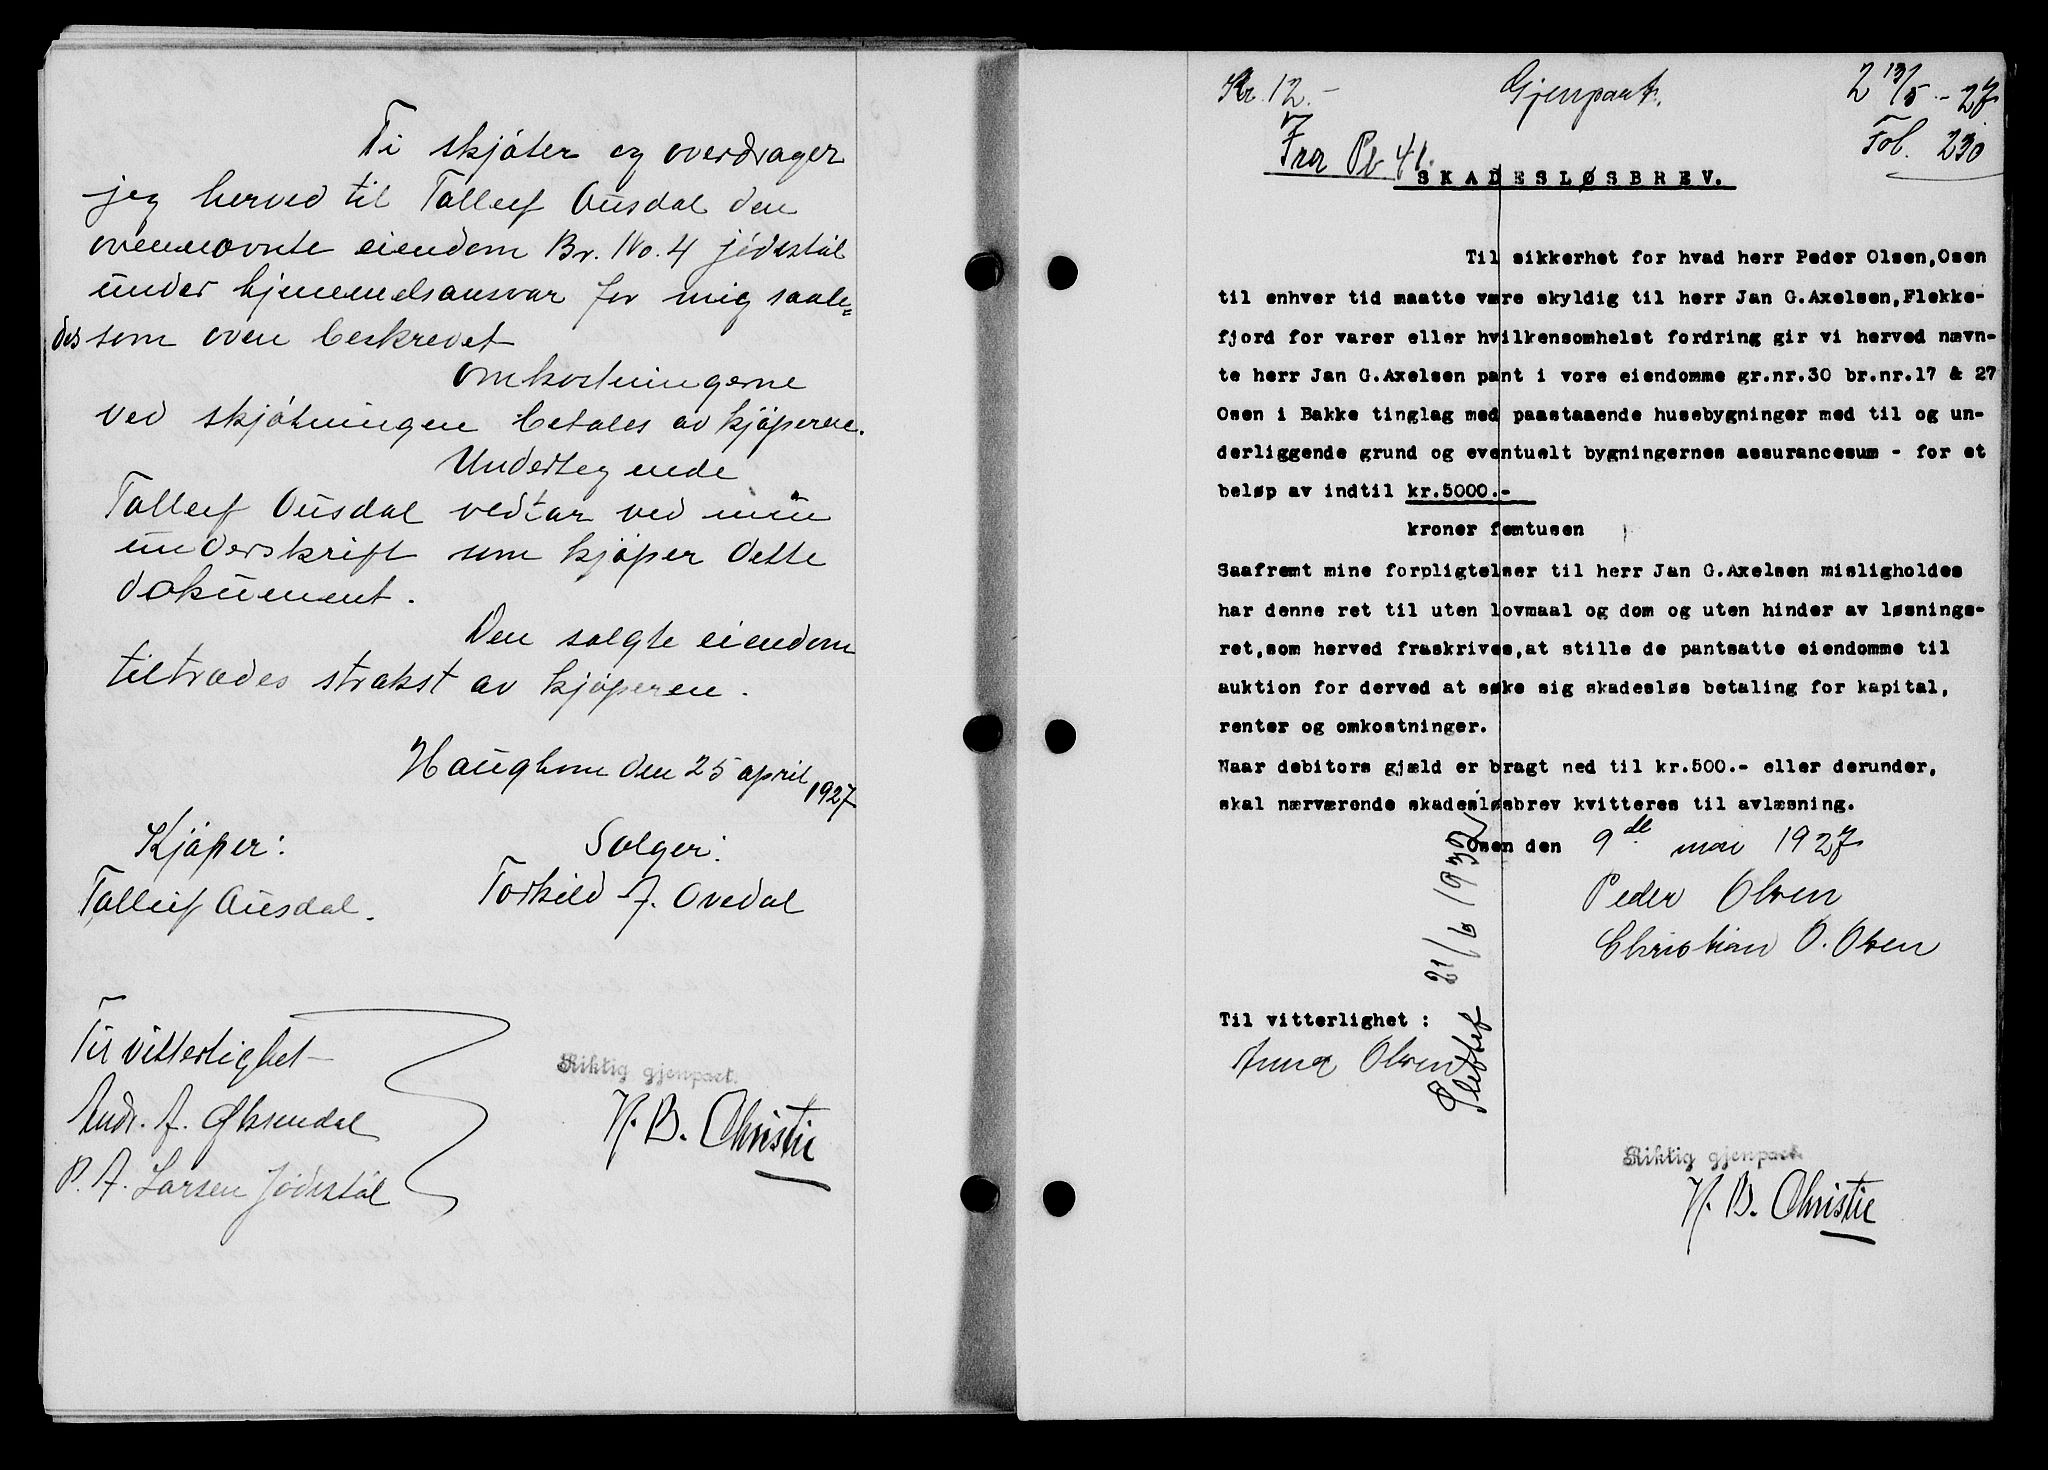 Ti skjöter og overdrager
jeg herved til Tolleif Ousdal den
ovennævnte eiendom Br. No. 4 jödestöl
under hjemmelsansvar for mig saale=
des som oven beskrevet
Omkostningerne
ved skjötningen betales av kjöperne.
Undertegnede
Tolleif Ousdal vedtar ved min
underskrift som kjöper dette
dokument.
Den solgte eiendom
tiltrædes strakst av kjöperen.
Haughom den 25 april 1927
Kjöper: Sælger:
Tolleif Ousdal. Torkild A. Ovedal
Til vitterlighet
Andr. A. Øksendal
P. A. Larsen Jödestöl
Riktig gjenpart.
H. B. Christie
Kr. 12.- Gjenpart. 2 13/5 - 27
Fra Pb 41. Fol. 230
SKADESLØSBREV.
Til sikkerhet for hvad herr Peder Olsen, Osen
til enhver tid maatte være skyldig til herr Jan G. Axelsen, Flekke-
fjord for varer eller hvilkensomhelst fordring gir vi herved nævn-
te herr Jan G. Axelsen pant i vore eiendomme gr.nr.30 br.nr.17 & 27
Osen i Bakke tinglag med paastaaende husebygninger med til og un-
derliggende grund og eventuelt bygningernes assurancesum - for et
beløp av indtil kr.5000.-
kroner femtusen
Saafremt mine forpligtelser til herr Jan G. Axelsen misligholdes
har denne ret til uten lovmaal og dom og uten hinder av løsnings-
ret, som herved fraskrives, at stille de pantsatte eiendomme til
auktion for derved at søke sig skadesløs betaling for kapital,
renter og omkostninger.
Naar debitors gjæld er bragt ned til kr.500.- eller derunder,
skal nærværende skadesløsbrev kvitteres til avlæsning.
Osen den 9de mai 1927
Peder Olsen
Christian O. Olsen
Til vitterlighet :
Anna Olsen
Slettet 21/6 1932
Riktig gjenpart.
H. B. Christie